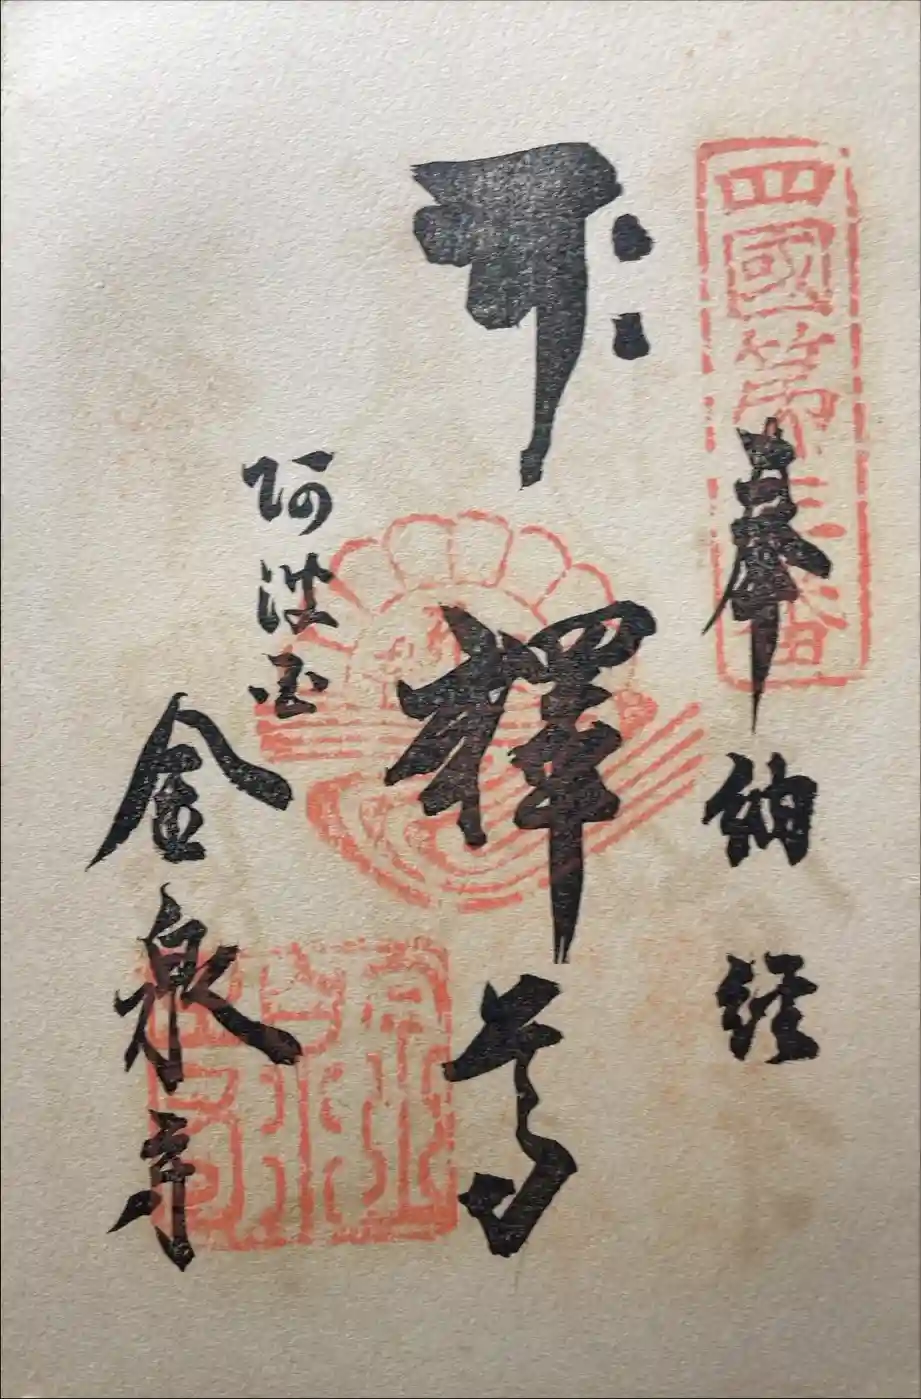 四國第三番
奉納経
𑖥𑖾
釋尊
阿波国
金泉寺